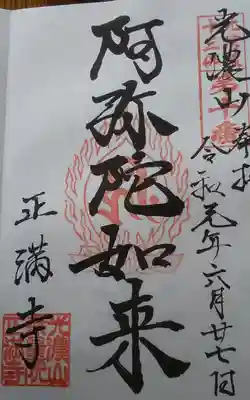 光濃山 奉拝
令和元年六月廿七日
阿弥陀如来
正満寺